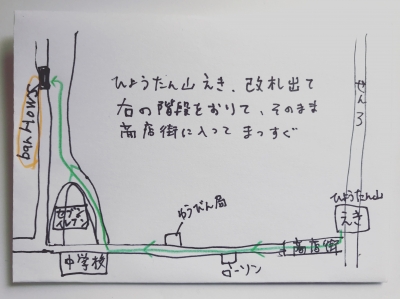 ひょうたん山えき、改札出て
右の階段をおりて、そのまま
商店街に入って まっすぐ
せんろ
ban HOWS
ひょうたん山
えき
ゆうびん局
セブン
イレブン
商店街
中学校
ローソン